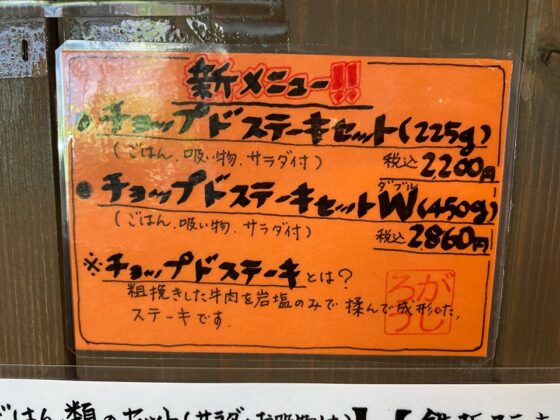 新メニュー!!
・チョップドステーキセット(225g)
(ごはん、吸い物、サラダ付) 税込2,200円
ダブル
・チョップドステーキセットW(450g)
(ごはん、吸い物、サラダ付) 税込2860円
※チョップドステーキとは?
粗挽きした牛肉を岩塩のみで揉んで成形した、
ステーキです.
がし
ろう
ごはん類のセット(サラダ・お吸物付)